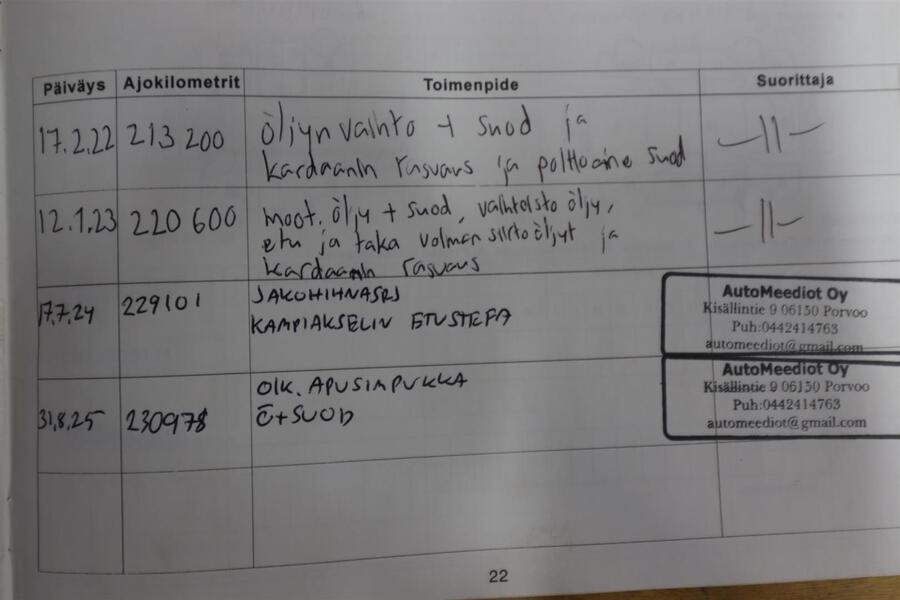 Päiväys Ajokilometrit Toimenpide Suorittaja
17.2.22 213 200 öljyn vaihto + suod ja
kardaanin rasvaus ja polttoaine suod
—||—
12.1.23 220 600 moot. öljy + suod, vaihteisto öljy,
etu ja taka voiman siirto öljyt ja
kardaanin rasvaus
—||—
17.7.24 229101 JAKOHIHNASRJ
KAMPIAKSELIN ETUSTEFA
AutoMeediot Oy
Kisällintie 9 06150 Porvoo
Puh:0442414763
automeediot@gmail.com
31.8.25 230978 OIK. APUSIMPUKKA
Ö+SUOD
AutoMeediot Oy
Kisällintie 9 06150 Porvoo
Puh:0442414763
automeediot@gmail.com
22